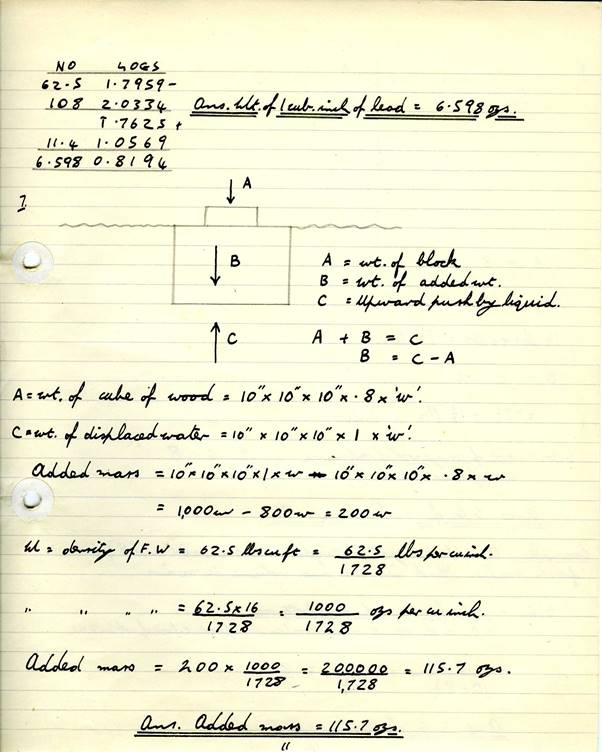 NO LOGS
62.5 1.7959 -
108 2.0334
Ans. Wt. of 1 cub. inch of lead = 6.598 ozs.
1̄.7625 +
11.4 1.0569
6.598 0.8194
7.
A
B
C
A = wt. of block
B = wt. of added wt.
C = Upward push by liquid.
A + B = C
B = C - A
A = wt. of cube of wood = 10" x 10" x 10" x .8 x 'w'.
C = wt. of displaced water = 10" x 10" x 10" x 1 x 'w'.
Added mass = 10" x 10" x 10" x 1 x w - 10" x 10" x 10" x .8 x w
= 1,000w - 800w = 200w
W = density of F.W = 62.5 lbs cu ft = 62.5/1728 lbs per cu inch.
" " " " = 62.5 x 16/1728 = 1000/1728 ozs per cu inch.
Added mass = 200 x 1000/1728 = 200000/1,728 = 115.7 ozs.
Ans. Added mass = 115.7 ozs.
"